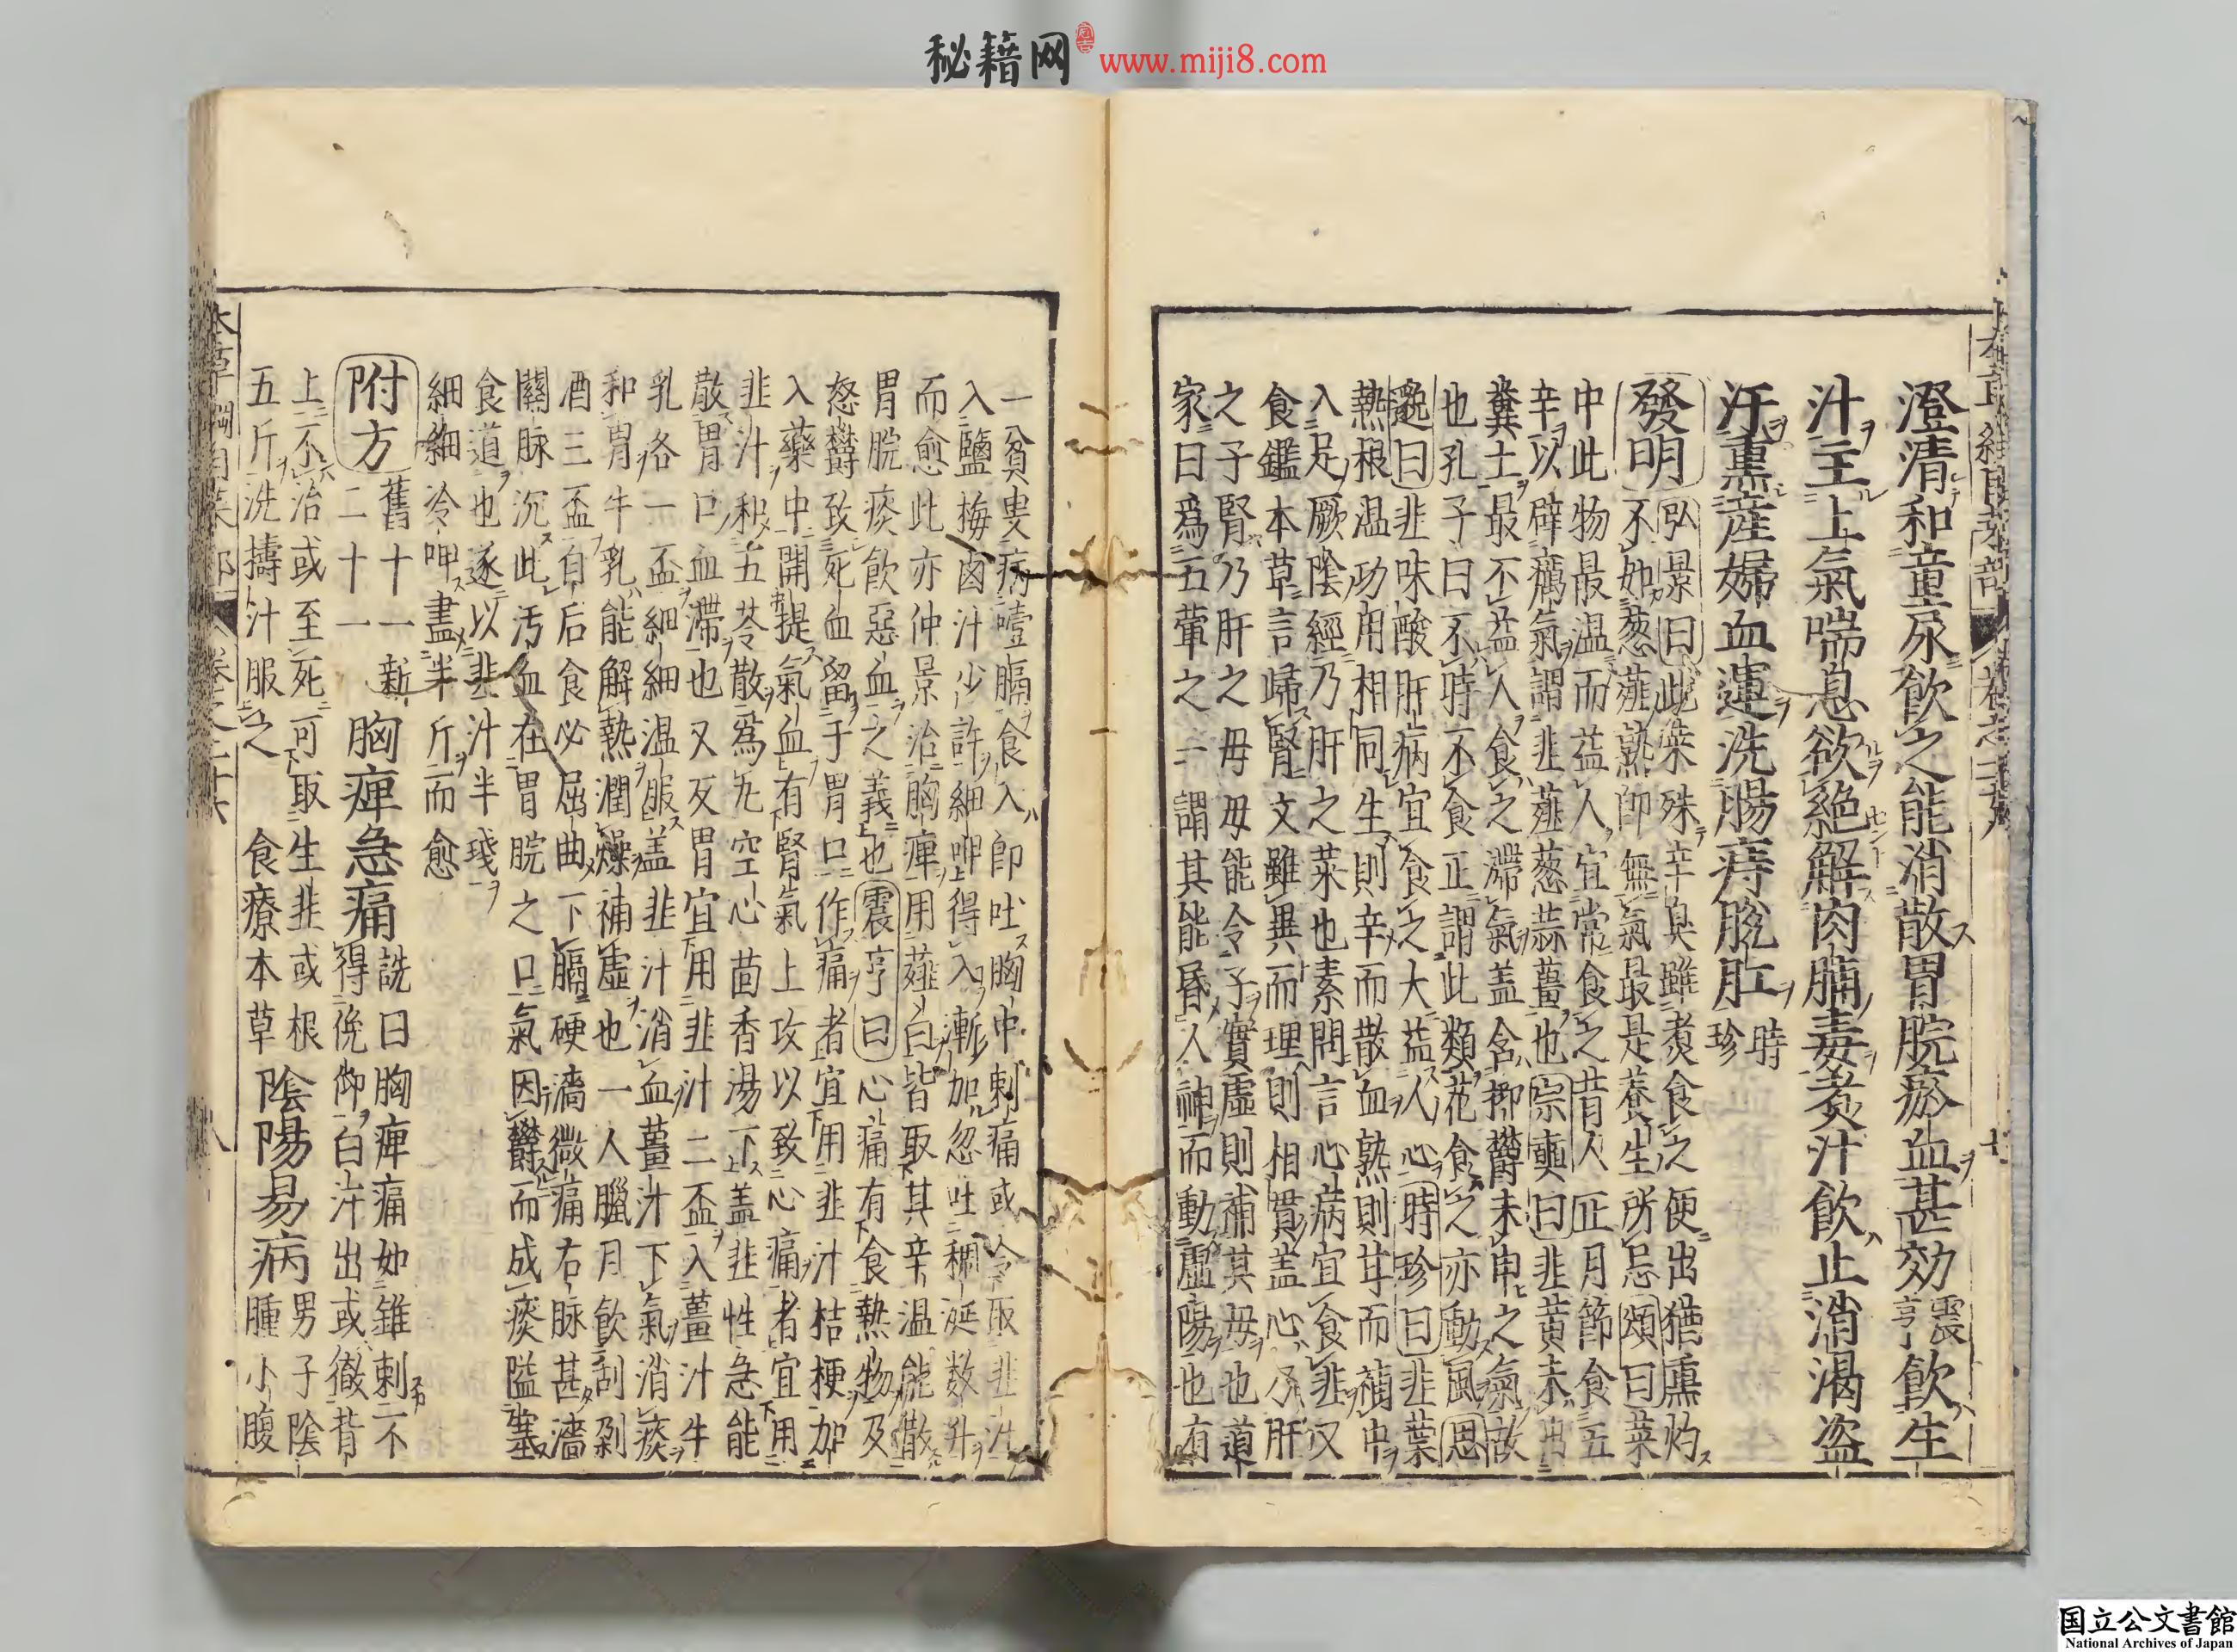 秘籍网 www.miji8.com
澄清和童尿飲之能消散胃脘瘀血甚効震亨飲生
汁主上氣喘息欲絶解肉脯毒煑汁飲止消渴盗
汗熏産婦血運洗腸痔脱肛時珍
發明弘景曰此菜殊辛臭雖煑食之便出猶熏灼
不如葱薤熟卽無氣最是養生所忌頌曰菜
中此物最温而益人宜常食之昔人正月節食五
辛以辟癘氣謂韭薤葱蒜薑也宗奭曰韭黄未出
糞土最不益人食之滯氣盖含抑鬱未申之氣故
也孔子曰不時不食正謂此類花食之亦動風思
邈曰韭味酸肝病宜食之大益人心時珍曰韭葉
熱根温功用相同生則辛而散血熟則甘而補中
入足厥陰經乃肝之菜也素問言心病宜食韭又
食鑑本草言歸腎文雖異而理則相貫盖心乃肝
之子腎乃肝之母母能令子實虚則補其母也道
家曰爲五葷之一謂其能昏人神而動虚陽也有
一貧叟病噎膈食入卽吐胸中刺痛或令取韭汁
入鹽梅鹵汁少許細呷得入漸加忽吐稠涎数升
而愈此亦仲景治胸痺用薤白皆取其辛温能散
胃脘痰飲惡血之義也震亨曰心痛有食熱物及
怒鬱致死血留于胃口作痛者宜用韭汁桔梗加
入藥中開提氣血有腎氣上攻以致心痛者宜用
韭汁和五苓散爲丸空心茴香湯下盖韭性急能
散胃口血滯也又反胃宜用韭汁二盃入薑汁牛
乳各一盃細細温服盖韭汁消血薑汁下氣消痰
和胃牛乳能解熱潤燥補虚也一人臘月飲刮剁
酒三盃自后食必屈曲下膈硬濇微痛右脉甚濇
關脉沉此汚血在胃脘之口氣因鬱而成痰隘塞
食道也遂以韭汁半琖
細細冷呷盡半斤而愈
附方舊十一新二十一胸痺急痛詵曰胸痺痛如錐刺不
得俛仰白汗出或徹背
上不治或至死可取生韭或根
五斤洗擣汁服之食療本草陰陽易病男子陰
腫小腹
国立公文書館
National Archives of Japan